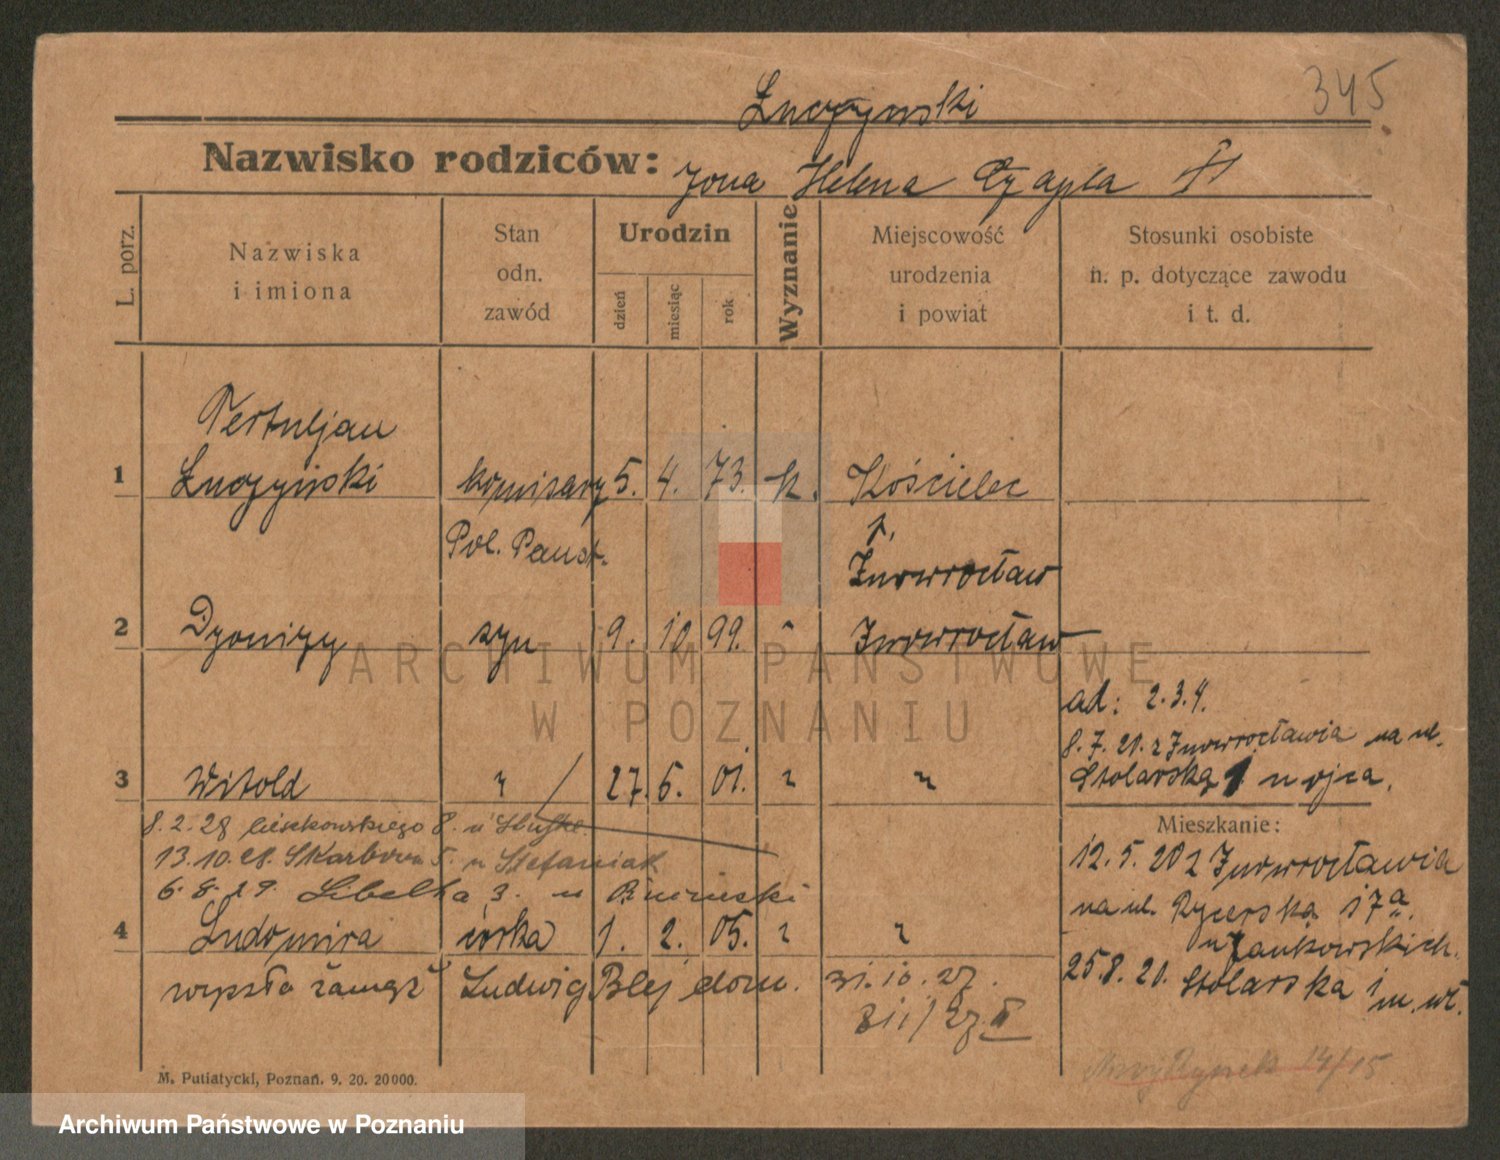 345
Łuczyński
Nazwisko rodziców: żona Helena Czapla
L. porz.
Nazwiska
i imiona
Stan
odn.
zawód
Urodzin
dzień
miesiąc
rok
Wyznanie
Miejscowość
urodzenia
i powiat
Stosunki osobiste
n. p. dotyczące zawodu
i t. d.
Tertuljan
1 Łuczyński komisarz 5. 4. 73. k. Kościelec
Pol. Państ. p.
Inowrocław
2 Dyonizy syn 9. 10. 99. " Inowrocław
ad: 2. 3. 4.
8. 7. 21. z Inowrocławia na ul.
Stolarską 1 u ojca.
3 Witold " 27. 6. 01. " "
Mieszkanie:
8. 2. 28 Cieszkowskiego 8. u
13. 10. 28. Skarbowa 5. u Stefaniak
6. 8. 29. Libelta 3. u
12. 5. 20 z Inowrocławia
na ul. Rycerska 17a.
u Jankowskich.
25.8. 21. Stolarska 1
m. wł.
4 Ludomira córka 1. 2. 05. " "
wyszła zamąż Ludwig Blej dom. 31. 10. 27.
811/27 II
Nowy Rynek 14/15
M. Putiatycki, Poznań. 9. 20. 20000.
ARCHIWUM PAŃSTWOWE
W POZNANIU
Archiwum Państwowe w Poznaniu